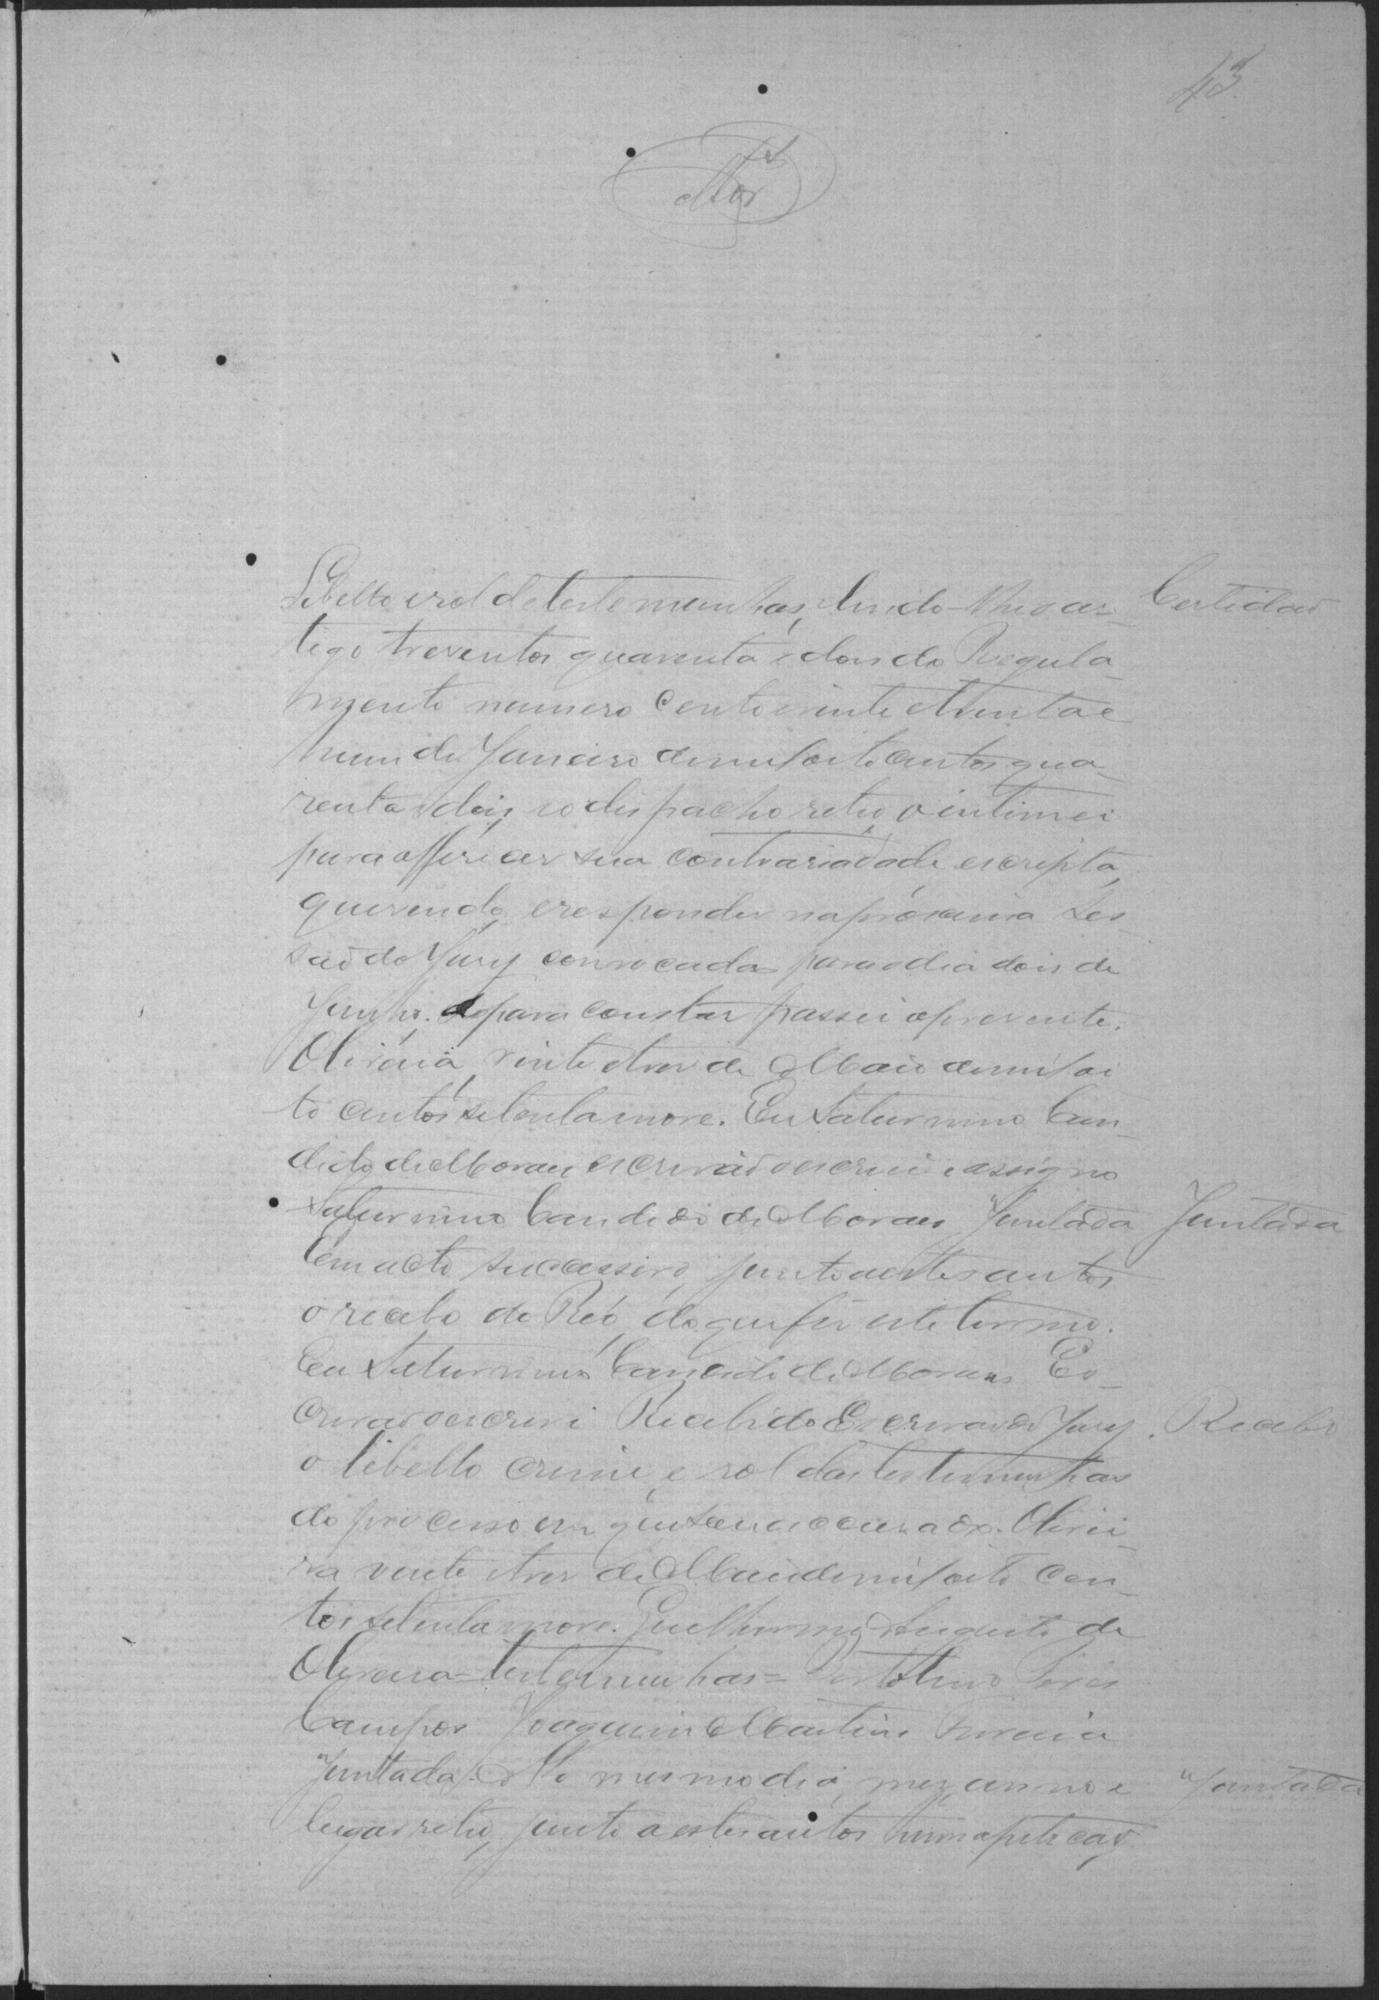 43
Mor
Libello e rol de testemunhas, lendo-lhe o ar- Certidão
tigo trezentos quarenta e dois do Regula-
mento numero cento e vinte e trinta e
hum de Janeiro de mil oito centos qua-
renta e dois, e o dispacho retro, o intimei
para offericer sua contrariadade escripta,
querendo, e responder na proxima Ses-
são do Jury convocada para o dia dois de
Junho. E para constar passei a presente.
Oliveira, vinte e tres de Maio de mil oi
to centos setenta e nove. Eu Saturnino Can-
dido de Moraes escrivão o escrevi e assigno
Saturnino Candido de Moraes Juntada Juntada
Em acto successivo, junto a estes autos
o recebo do Réo, do que fiz este termo.
Eu Saturnino Candido de Moraes Es-
crivão o escrevi Recebi do Escrivão do Jury Recebo
o libello crime, e rol das testemunhas
do processo em que sou accusado. Olivei-
ra vinte e tres de Maio de mil oito cen-
tos setenta e nove. Guilhermo Augusto de
Oliveira = testemunhas = Pires
Campos Joaquim Martins
Juntada. No mesmo dia, mez, anno e Juntada
lugar retro, junto a estes autos huma petição